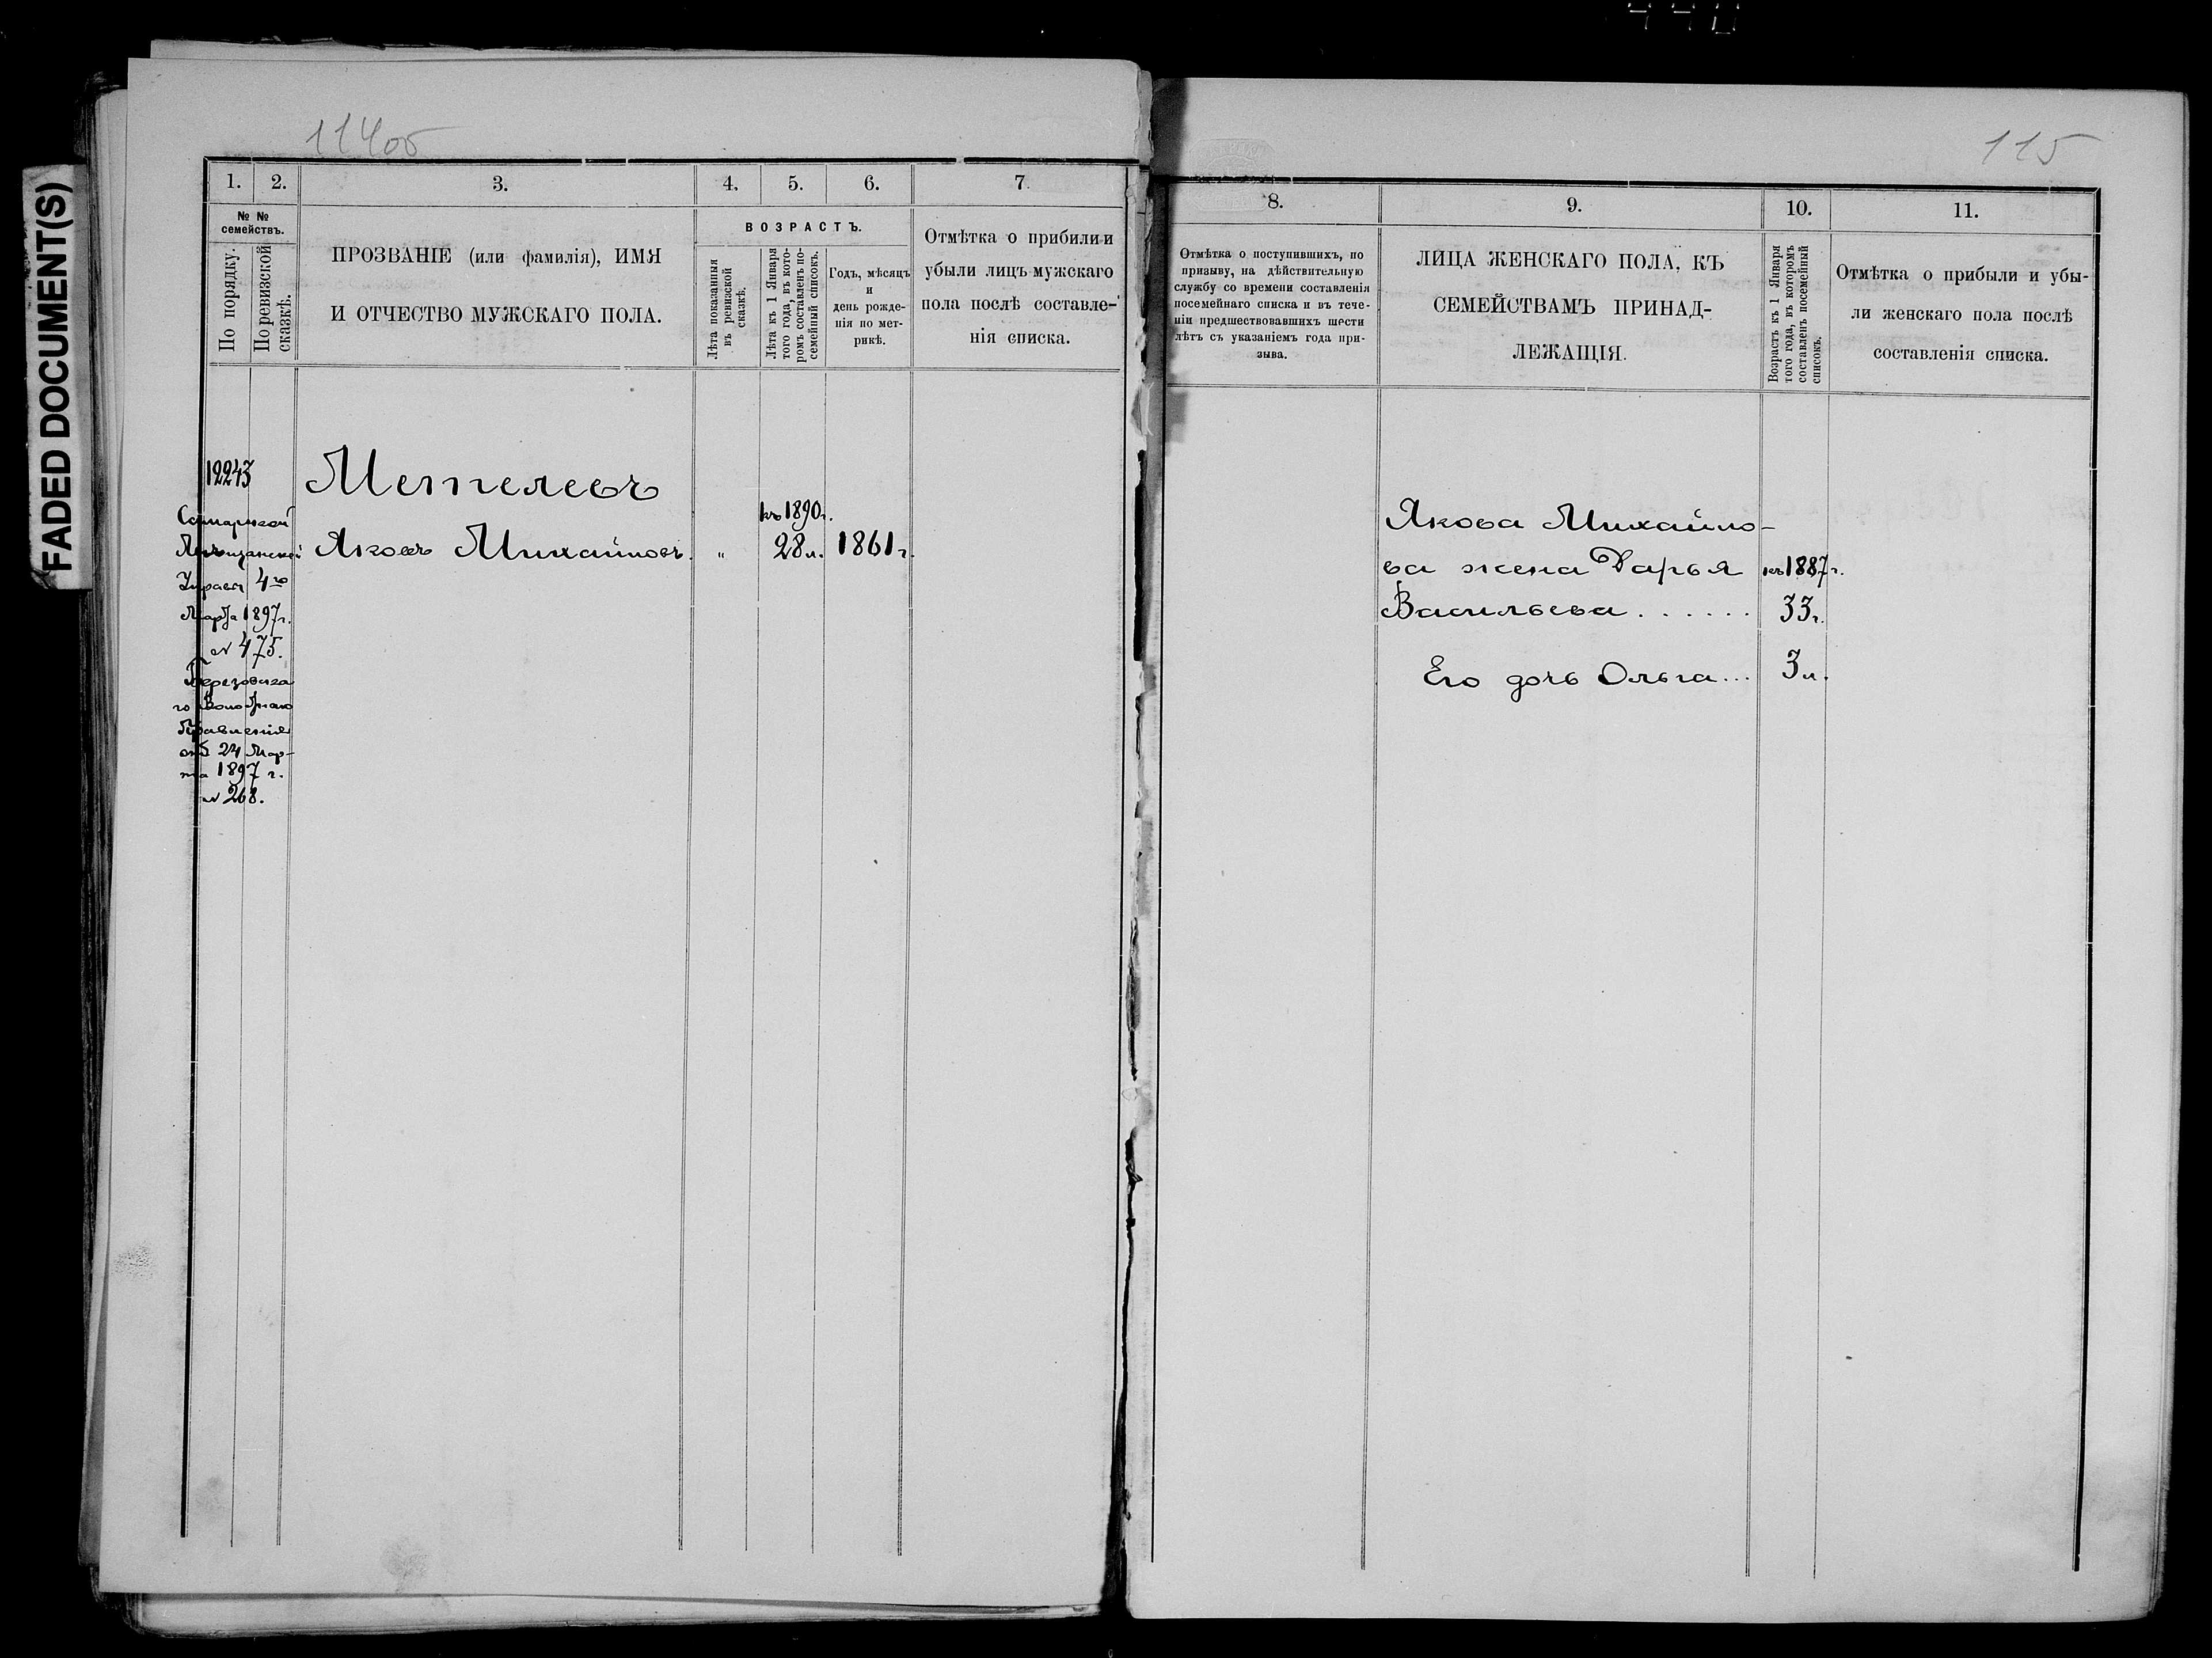 440
FADED DOCUMENT(S)
114об
1. 2. 3. 4. 5. 6. 7.
№ №
семействъ.
По порядку.
По ревизской
сказкѣ.
ПРОЗВАНІЕ (или фамилія), ИМЯ
И ОТЧЕСТВО МУЖСКАГО ПОЛА.
ВОЗРАСТЪ.
Лѣта показанныя
въ ревизской
сказкѣ.
Лѣта къ 1 Января
того года, въ кото-
ромъ составленъ по-
семейный списокъ.
Годъ, мѣсяцъ
и
день рожде-
нія по мет-
рикѣ.
Отмѣтка о прибыли и
убыли лицъ мужскаго
пола послѣ составле-
нія списка.
12243
Метелевъ
Самарской
Мѣщанской
Управы 4го
Марта 1897 г.
№ 475.
Березовска
го Волостнаго
Правленія
отъ 24 Мар-
та 1897 г.
№ 268.
Яковъ Михайловъ. „
къ 1890 г.
28 л. 1861 г.
115
8. 9. 10. 11.
Отмѣтка о поступившихъ, по
призыву, на дѣйствительную
службу со времени составленія
посемейнаго списка и въ тече-
ніи предшествовавшихъ шести
лѣтъ съ указаніемъ года при-
зыва.
ЛИЦА ЖЕНСКАГО ПОЛА, КЪ
СЕМЕЙСТВАМЪ ПРИНАД-
ЛЕЖАЩІЯ.
Возрастъ къ 1 Января
того года, въ которомъ
составленъ посемейный
списокъ.
Отмѣтка о прибыли и убы-
ли женскаго пола послѣ
составленія списка.
Якова Михайло-
ва жена Дарья къ 1887 г.
Васильева . . . . . . 33 г.
Его дочь Ольга... 3 л.